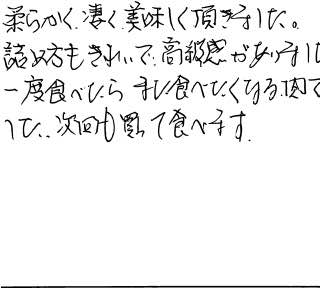 柔らかく、凄く美味しく頂きました。
詰め方もきれいで、高級感がありまし
一度食べたら また食べたくなる肉で
した、次回も買って食べます。